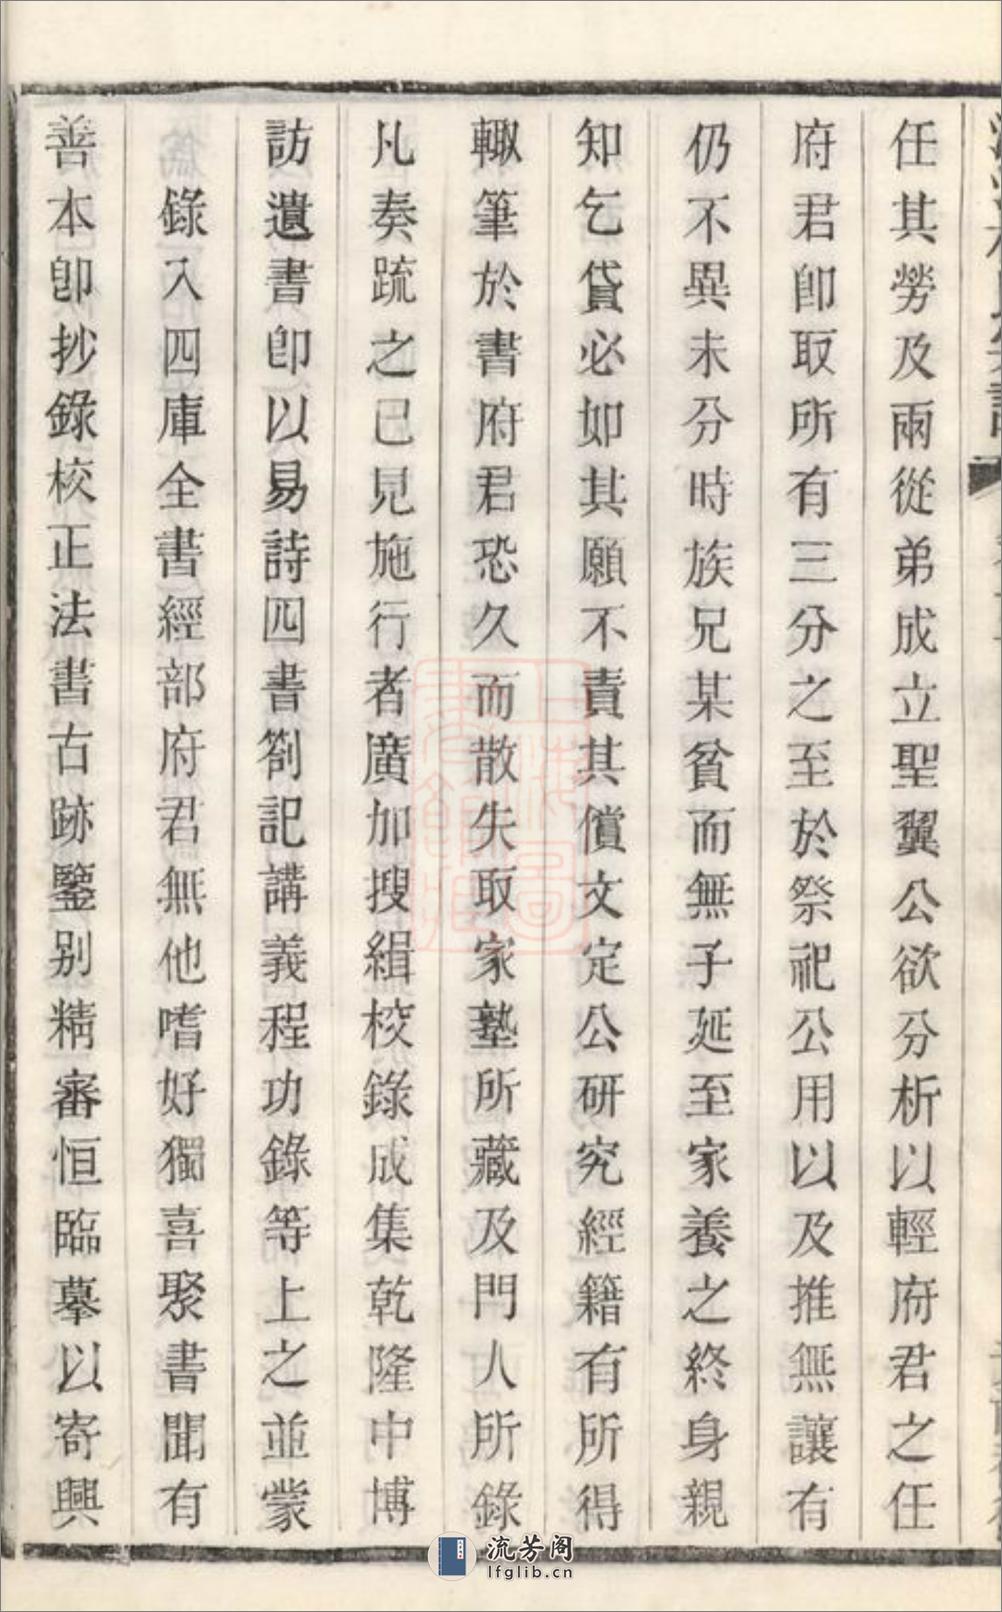 任其勞及兩從弟成立聖翼公欲分析以輕府君之任
府君卽取所有三分之至於祭祀公用以及推無讓有
仍不異未分時族兄某貧而無子延至家養之終身親
知乞貸必如其願不責其償文定公研究經籍有所得
輙筆於書府君恐久而散失取家塾所藏及門人所錄
凡奏疏之已見施行者廣加搜緝校錄成集乾隆中博
訪遺書卽以易詩四書劄記講義程功錄等上之並蒙
錄入四庫全書經部府君無他嗜好獨喜聚書聞有
善本卽抄錄校正法書古跡鑒别精審恒臨摹以寄興
流芳阁
lfglib.cn